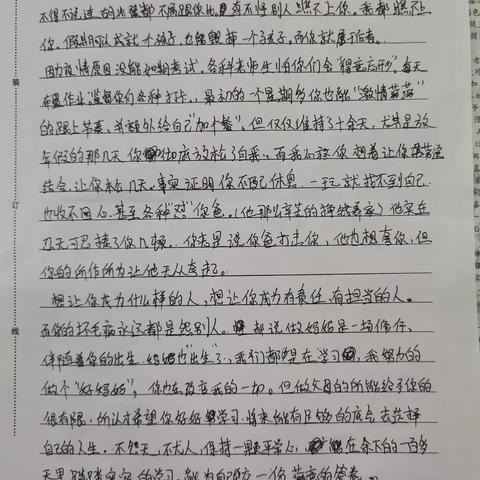 不得不说过的光景都不愿跟你出,真不怪别人瞧不上你。我都瞧不上
你,假期可以成就一个孩子,也能毁掉一个孩子,而你就属于后者。
因为疫情原因没能如期考试,各科老师生怕你们会“得意忘形”,每天
布置作业,监督你们各种打卡,最初的一个星期多你也能“激情荡荡”
的跟上节奏,并额外给自己“加个餐”。但仅仅维持了十余天,尤其是放
年假的那几天 你彻底放松了自我,而我心疼你 想着让你劳逸
结合,让你松几天。事实证明你不配休息,一玩就找不到自己
也收不回心,甚至各种“怼”你爸,(他那么辛苦的挣钱养家)他实在
忍无可忍揍了你几顿。你老是说你爸打击你,他也想夸你,但
你的所作所为让他无从夸起。
想让你成为什么样的人,想让你成为有责任,有担当的人。
而你的坏毛病永远都是怨别人。都说做妈妈是一场修行,
伴随着你的出生 妈妈也“出生”了,我们都是在学习,我努力的
做个“好妈妈”,你也在改变我的一切。但做父母的所能给予你的
很有限,所以才希望你好好学习,将来能有足够的底气去选择
自己的人生。不怨天,不尤人,保持一颗平常心,在余下的一百多
天里 踏踏实实的学习,能为自己交一份满意的答卷。
装
订
线